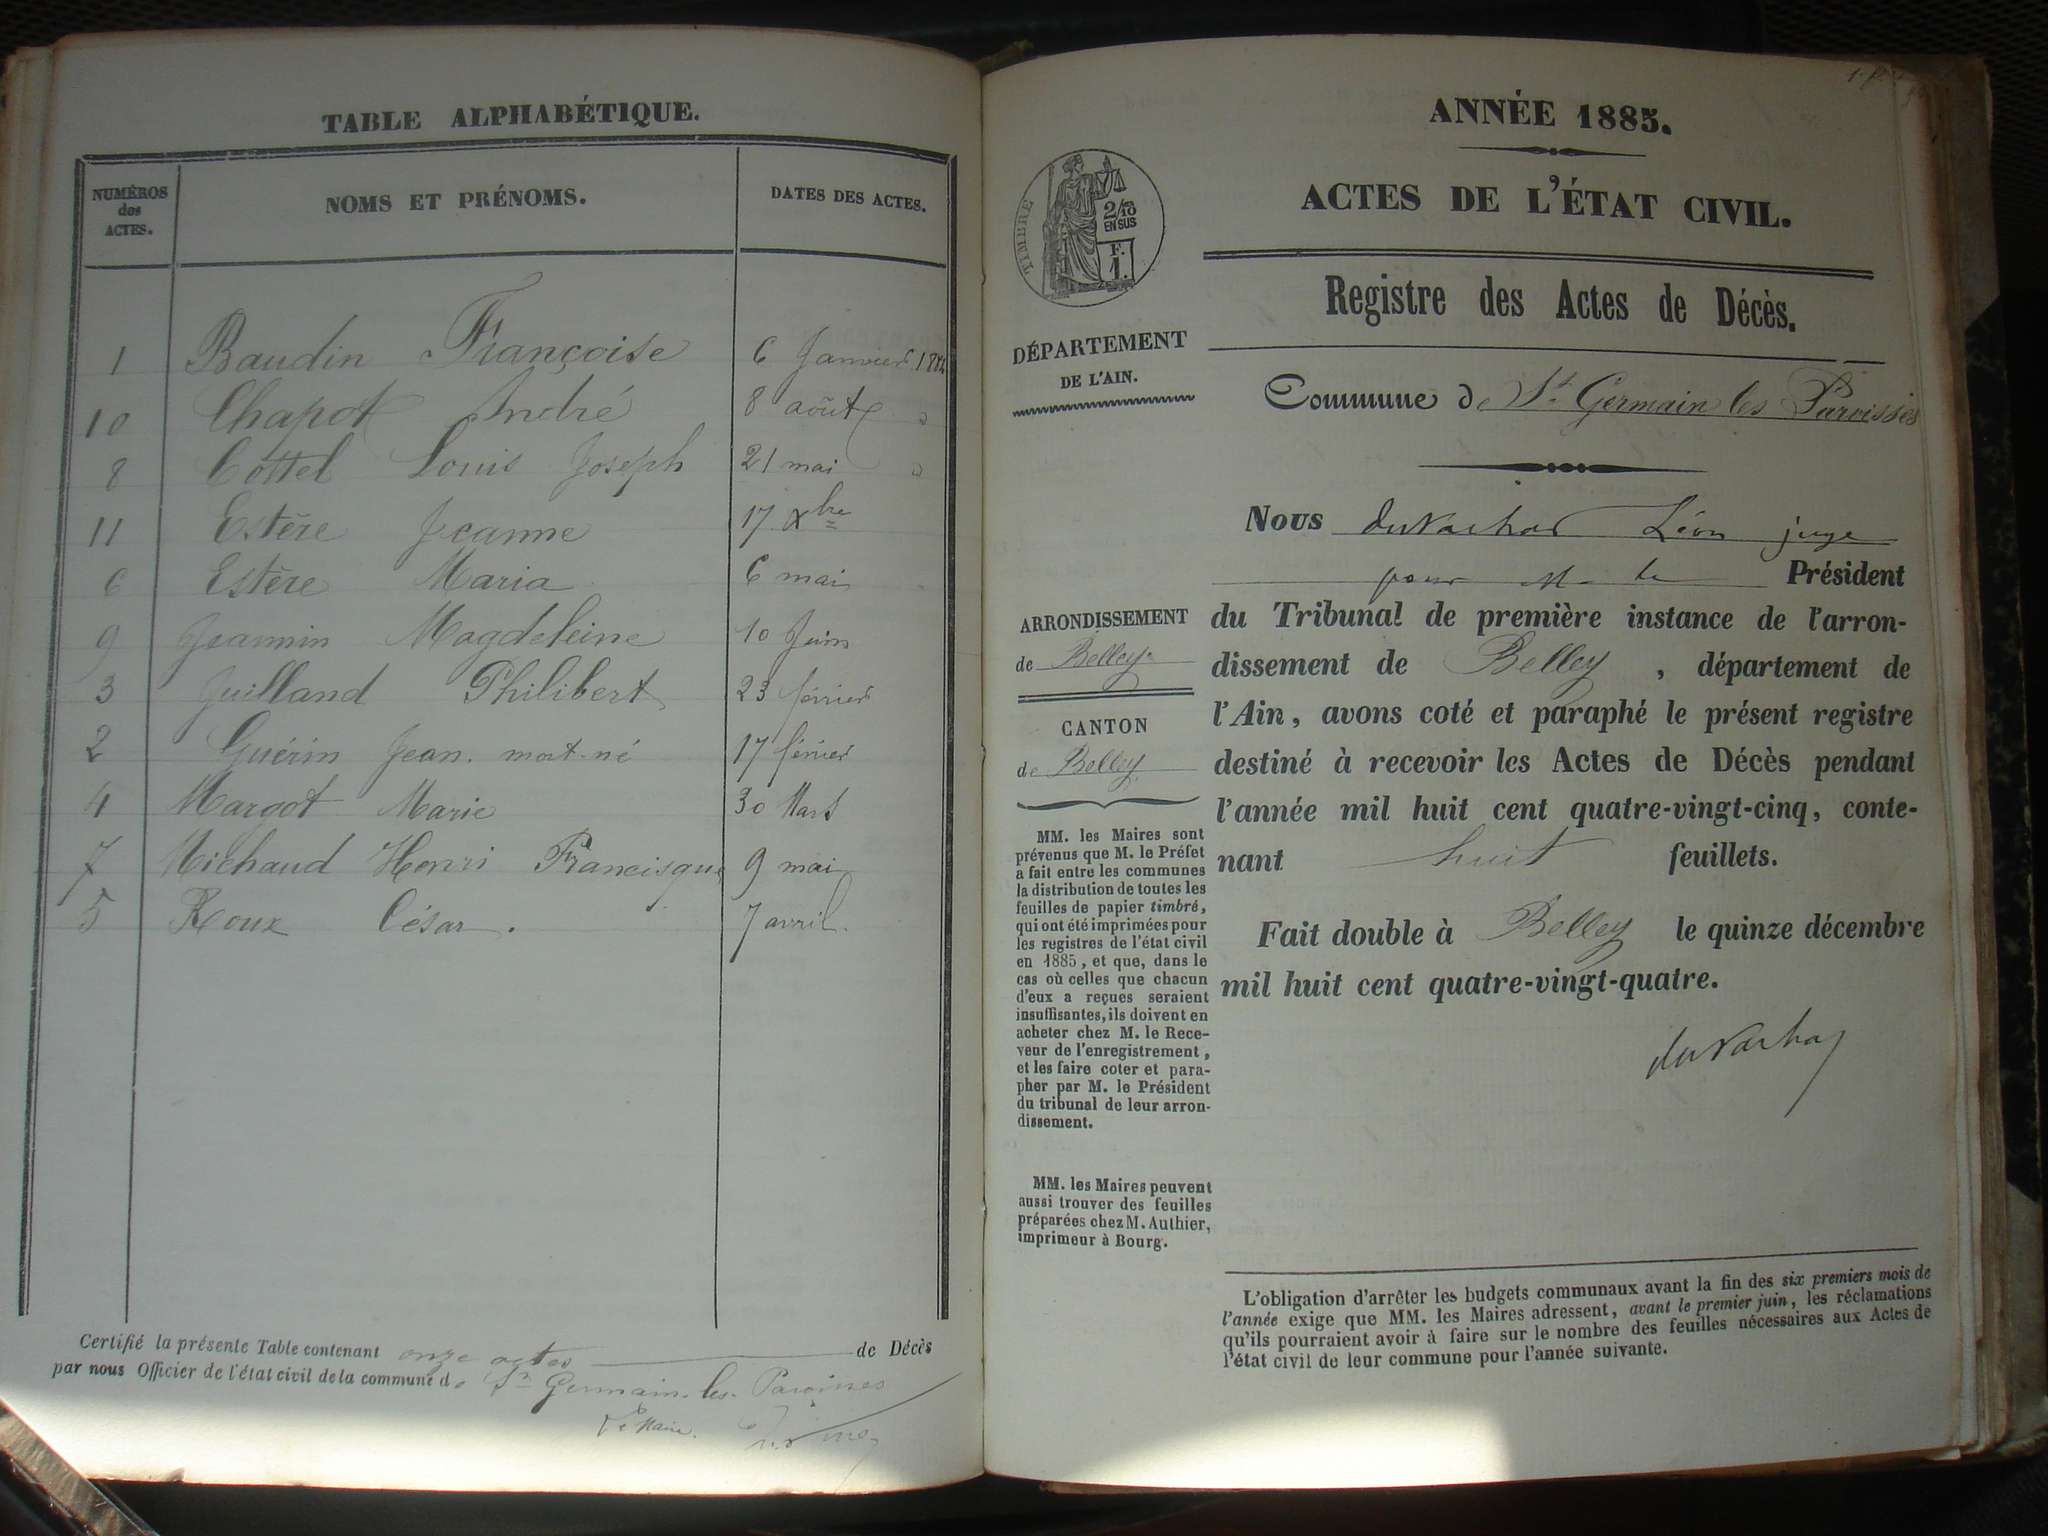 TABLE ALPHABÉTIQUE.
NUMÉROS
des
ACTES.
NOMS ET PRÉNOMS.
DATES DES ACTES.
1 Baudin Françoise 6 Janvier
10 Chapot André 8 août
8 Cottel Louis Joseph 21 mai
11 Estère Jeanne 17 Xbre
6 Estère Maria 6 mai
9 Jeannin Magdeleine 10 Juin
3 Juilland Philibert 23 février
2 Guérin Jean. mort-né 17 février
4 Margot Marie 30 Mars
7 Michaud Henri Francisque 9 mai
5 Roux César. 7 avril.
Certifié la présente Table contenant onze actes de Décès
par nous Officier de l'état civil de la commune de St Germain-les-Paroisses
Le Maire.
ANNÉE 1885.
ACTES DE L'ÉTAT CIVIL.
Registre des Actes de Décès.
TIMBRE
2/10
EN SUS
F.
1.
DÉPARTEMENT
DE L'AIN.
Commune de St Germain les Paroisses
Nous Léon juge
pour M. le Président
du Tribunal de première instance de l'arron-
dissement de Belley, département de
l'Ain, avons coté et paraphé le présent registre
destiné à recevoir les Actes de Décès pendant
l'année mil huit cent quatre-vingt-cinq, conte-
nant huit feuillets.
Fait double à Belley le quinze décembre
mil huit cent quatre-vingt-quatre.
ARRONDISSEMENT
de Belley
CANTON
de Belley
MM. les Maires sont
prévenus que M. le Préfet
a fait entre les communes
la distribution de toutes les
feuilles de papier timbré,
qui ont été imprimées pour
les registres de l'état civil
en 1885, et que, dans le
cas où celles que chacun
d'eux a reçues seraient
insuffisantes, ils doivent en
acheter chez M. le Rece-
veur de l'enregistrement,
et les faire coter et para-
pher par M. le Président
du tribunal de leur arron-
dissement.
MM. les Maires peuvent
aussi trouver des feuilles
préparées chez M. Authier,
imprimeur à Bourg.
L'obligation d'arrêter les budgets communaux avant la fin des six premiers mois de
l'année exige que MM. les Maires adressent, avant le premier juin, les réclamations
qu'ils pourraient avoir à faire sur le nombre des feuilles nécessaires aux Actes de
l'état civil de leur commune pour l'année suivante.